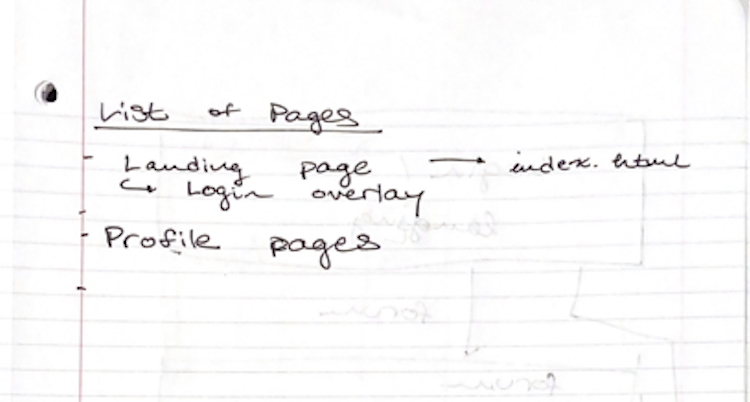 List of Pages
- Landing page → index.html
↳ Login overlay
-
- Profile pages
-